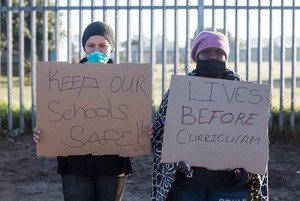 KEEP OUR
Schools
SAFE!!
LIVES
BEFORE
CURRICULAM